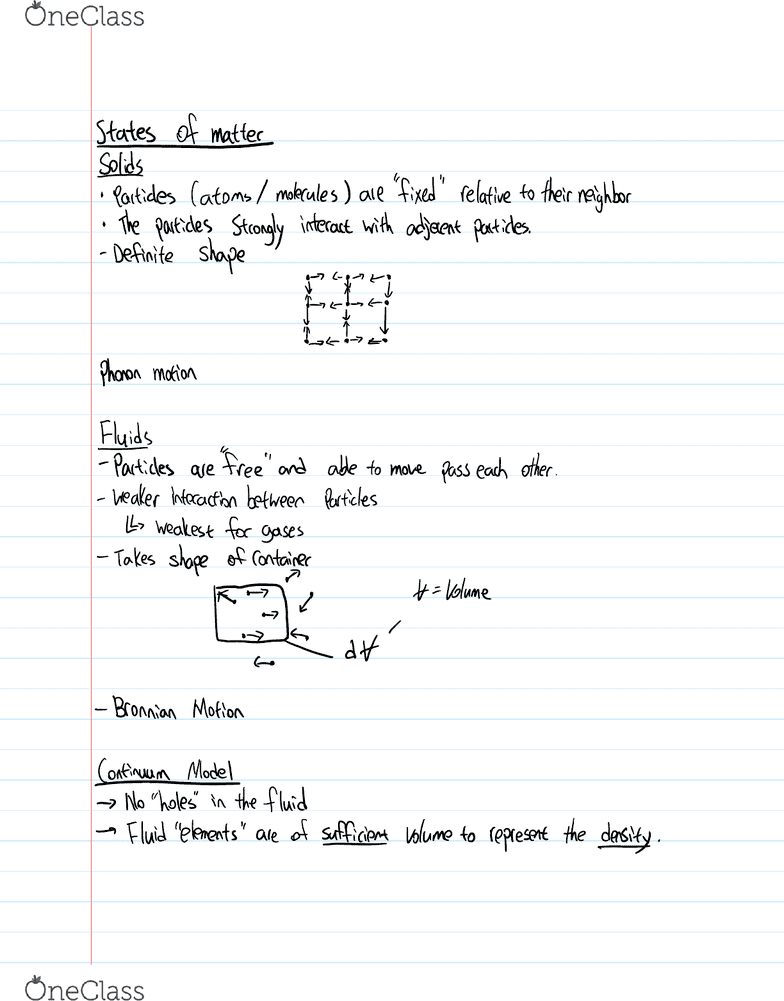 OneClass
States of matter
Solids
· Particles (atoms / molecules) are "fixed" relative to their neighbor
· The particles strongly interact with adjacent particles.
- Definite shape
Phonon motion
Fluids
- Particles are "free" and able to move pass each other.
- Weaker interaction between Particles
↳ weakest for gases
- Takes shape of container
V = Volume
dV
- Bronnian Motion
Continuum Model
→ No "holes" in the fluid
→ Fluid "elements" are of sufficient volume to represent the density.
OneClass